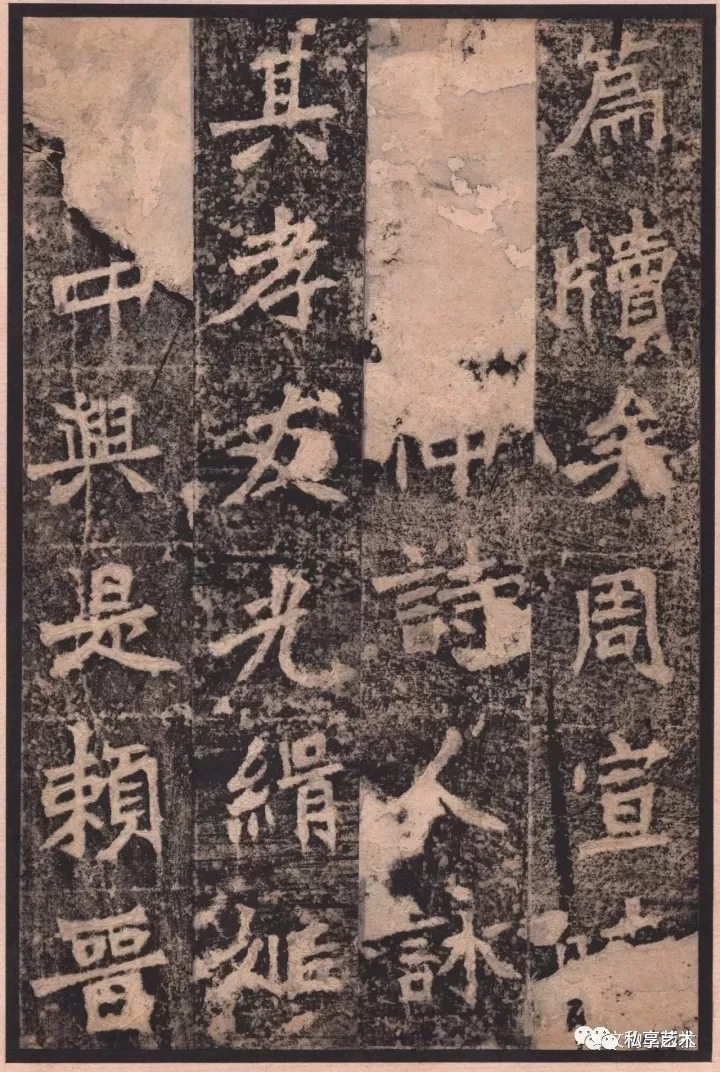 篇牘矣周宣
仲詩人詠
其孝友光緝姬
中興是賴晉
私享艺术